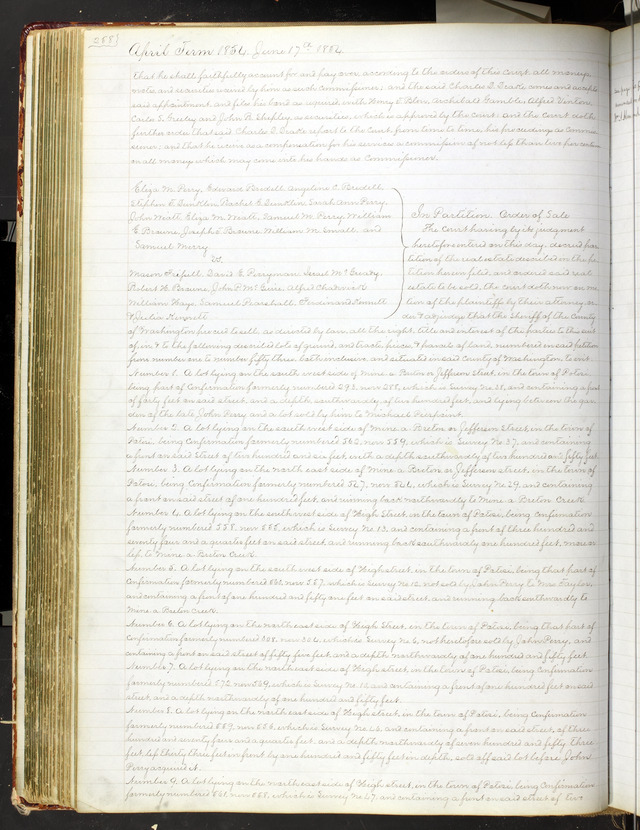 258
April Term 1854. June 17th 1854.
that he shall faithfully account for and pay over, according to the orders of this Court, all moneys
note and securities received by him as such Commissioner; and the said Charles D. Drake comes and accepts
said appointment, and files his bond as aforesaid with Henry T. Blow, Archibald Gamble, Alfred Vinton,
Carlos S. Greeley and John B. Shepley, as securities, which is approved by the court: and the court doth
further order that said Charles D. Drake report to the Court, from time to time, his proceedings as Commis-
sioner; and that he receive as a compensation for his services a commission of not less than two per centum
on all money which may come into his hands as Commissioner.
Eliza M. Perry, Edward Bredell, Angeline C. Bredell,
Stephen F. Dunklin, Rachel E. Dunklin, Sarah Ann Perry,
John Miatt, Eliza M. Miatt, Samuel M. Perry, William
E. Browne, Joseph T. Browne, William M. Small, and
Samuel Merry
vs.
Mason Frissell, David E. Perryman, Israel McGready,
Robert H. Browne, John P. McGuire, Alfred Chadwick
William Hays, Samuel Marshall, Ferdinand Kennett
& Julia Kennett
In Partition. Order of Sale
The Court having by its judgment
heretofore entered on this day, decreed par-
tition of the real estate described in the pe-
tition herein filed, and ordered said real
estate to be sold, the court doth now on mo-
tion of the plaintiffs by their attorney or-
der & adjudge that the sheriff of the County
of Washington proceed to sell, as directed by law, all the right, title and interest of the parties to this suit
of, in & to the following described lots of ground, and tracts, pieces & parcels of land, numbered in said petition
from number one to number fifty three both inclusive, and situated in said County of Washington, to wit:
Number 1. A lot lying on the south west side of Mine a Breton or Jefferson Street, in the town of Potosi,
being part of Confirmation formerly numbered 293, now 288, which is Survey No 38, and containing a front
of forty feet on said street, and a depth, southwardly, of two hundred feet, and lying between the gar-
den of the late John Perry and a lot sold by him to Michael Pierpoint.
Number 2. A lot lying on the south west side of Mine a Breton or Jefferson Street, in the town of
Potosi, being Confirmation formerly numbered 562, now 559, which is Survey No 37, and containing
a front on said Street of two hundred and six feet, with a depth southwardly of two hundred and fifty feet.
Number 3. A lot lying on the north east side of Mine a Breton or Jefferson street, in the town of
Potosi, being Confirmation formerly numbered 567, now 564, which is Survey No 29, and containing
a front on said street of one hundred feet, and running back northwardly to Mine a Breton Creek.
Number 4. A lot lying on the southwest side of High Street, in the town of Potosi, being Confirmation
formerly numbered 588, now 585, which is Survey No 13, and containing a front of three hundred and
seventy four and a quarter feet on said street and running back southwardly one hundred feet, more or
less to Mine a Breton Creek.
Number 5. A lot lying on the south west side of High street, in the town of Potosi, being that part of
Confirmation formerly numbered 560, now 557, which is Survey No 12 not sold by John Perry to Mrs Taylor,
and containing a front of one hundred and fifty one feet on said street, and running back southwardly to
Mine a Breton Creek.
Number 6. A lot lying on the north east side of High Street, in the town of Potosi, being that part of
Confirmation formerly numbered 308, now 304, which is Survey No 6, not heretofore sold by John Perry, and
containing a front on said street of fifty five feet, and a depth northwardly of one hundred and fifty feet.
Number 7. A lot lying on the north east side of High street, in the town of Potosi, being Confirmation
formerly numbered 572, now 569, which is Survey No 10, and containing a front of one hundred feet on said
street, and a depth northwardly of one hundred and fifty feet.
Number 8. A lot lying on the north east side of High street, in the town of Potosi, being Confirmation
formerly numbered 559, now 556, which is Survey No and containing a front on said street, of three
hundred and seventy four and a quarter feet, and a depth northwardly of seven hundred and fifty three
feet, less thirty three feet in front by one hundred and fifty feet in depth, sold off said lot before John
Perry acquired it.
Number 9. A lot lying on the north east side of High street, in the town of Potosi, being Confirmation
formerly numbered 561, now 558, which is Survey No 47, and containing a front on said street of two